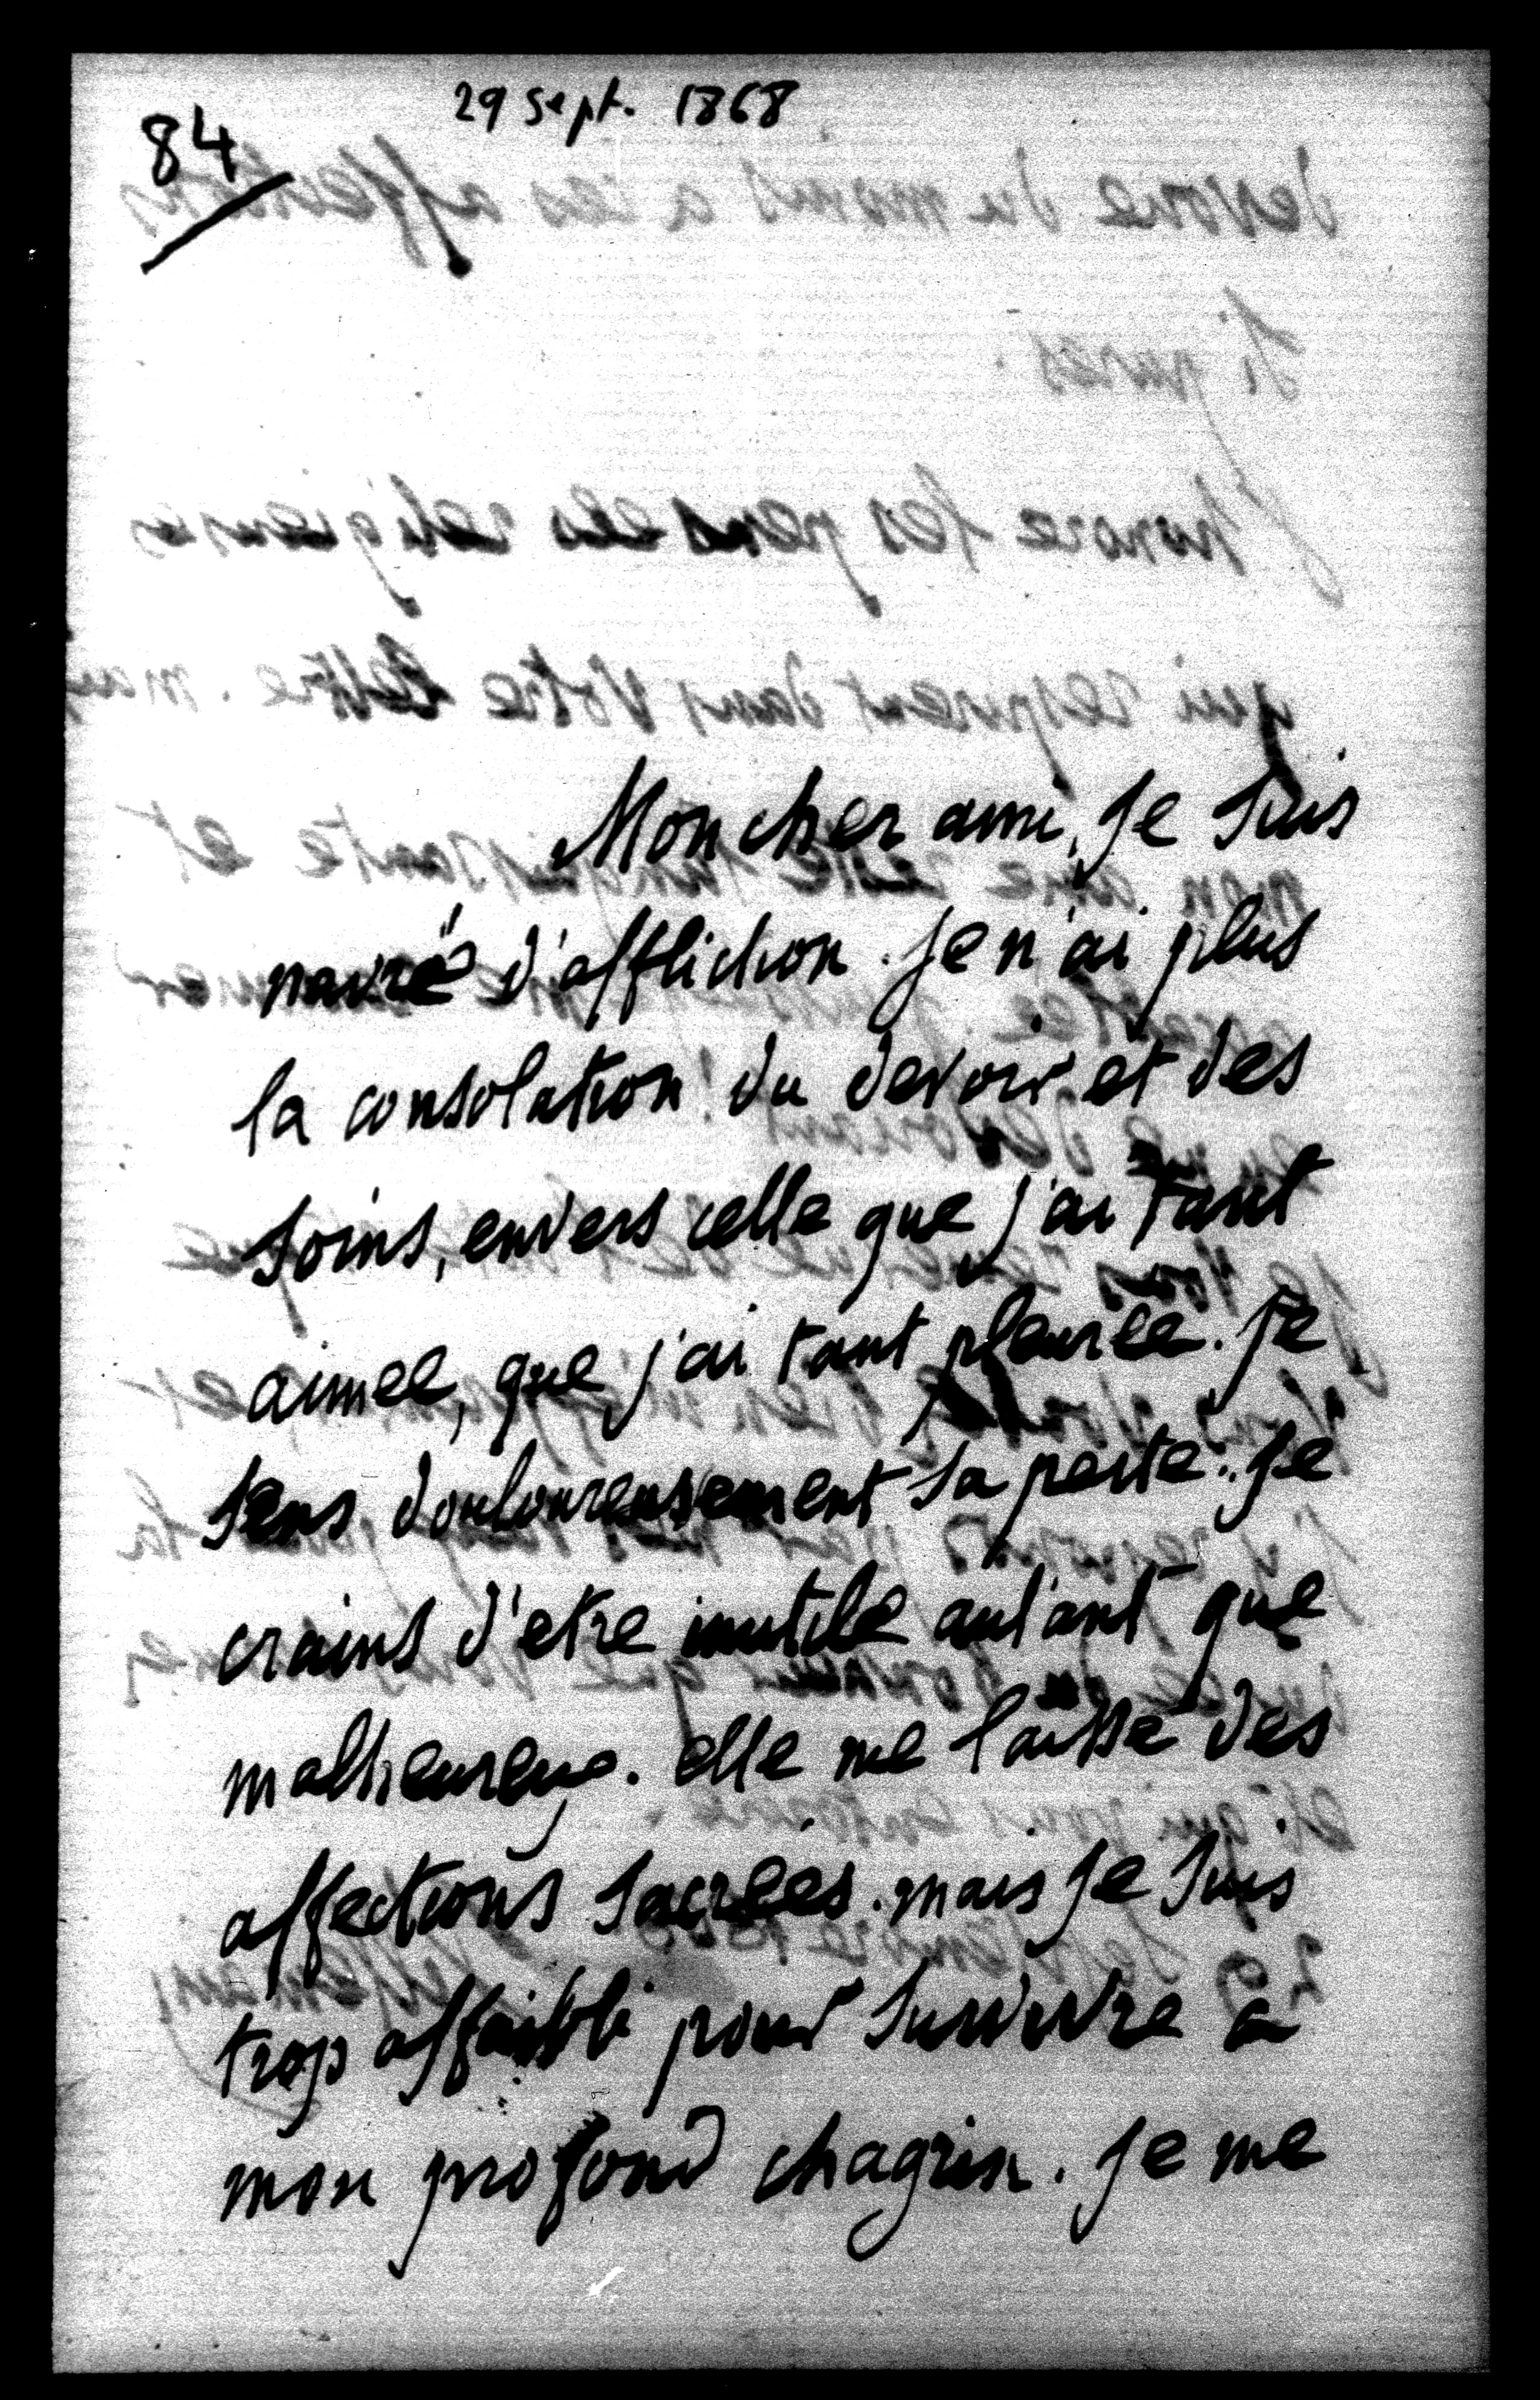 84
29 sept. 1868
Mon cher ami, Je suis
navré d'affliction. Je n'ai plus
la consolation du devoir et des
soins, envers celle que j'ai tant
aimee, que j'ai tant pleurée. Je
sens douloureusement sa perte. Je
crains d'etre inutile autant que
malheureux. elle me laisse des
affections sacrées. mais Je suis
trop affaibli pour survivre a
mon profond chagrin. Je me